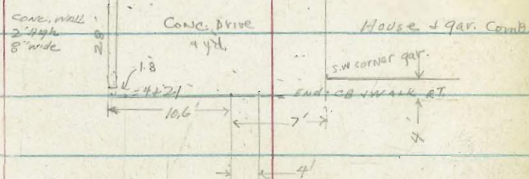 CONC. WALL
2' High
8" wide
2.8
Conc. Drive
& yd.
House & gar. Comb
S.W corner gar.
1.8
= 4+21
END CB & WALK RT.
10.6'
7'
X
4'